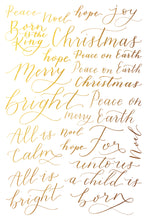 Peace Noel hope Joy
Born is the King
Christmas
hope Peace on Earth
Merry Peace on Earth
Christmas
bright Peace on
merry Earth
All is noel hope
Calm Joy Noel
unto us
All is a child is
bright born